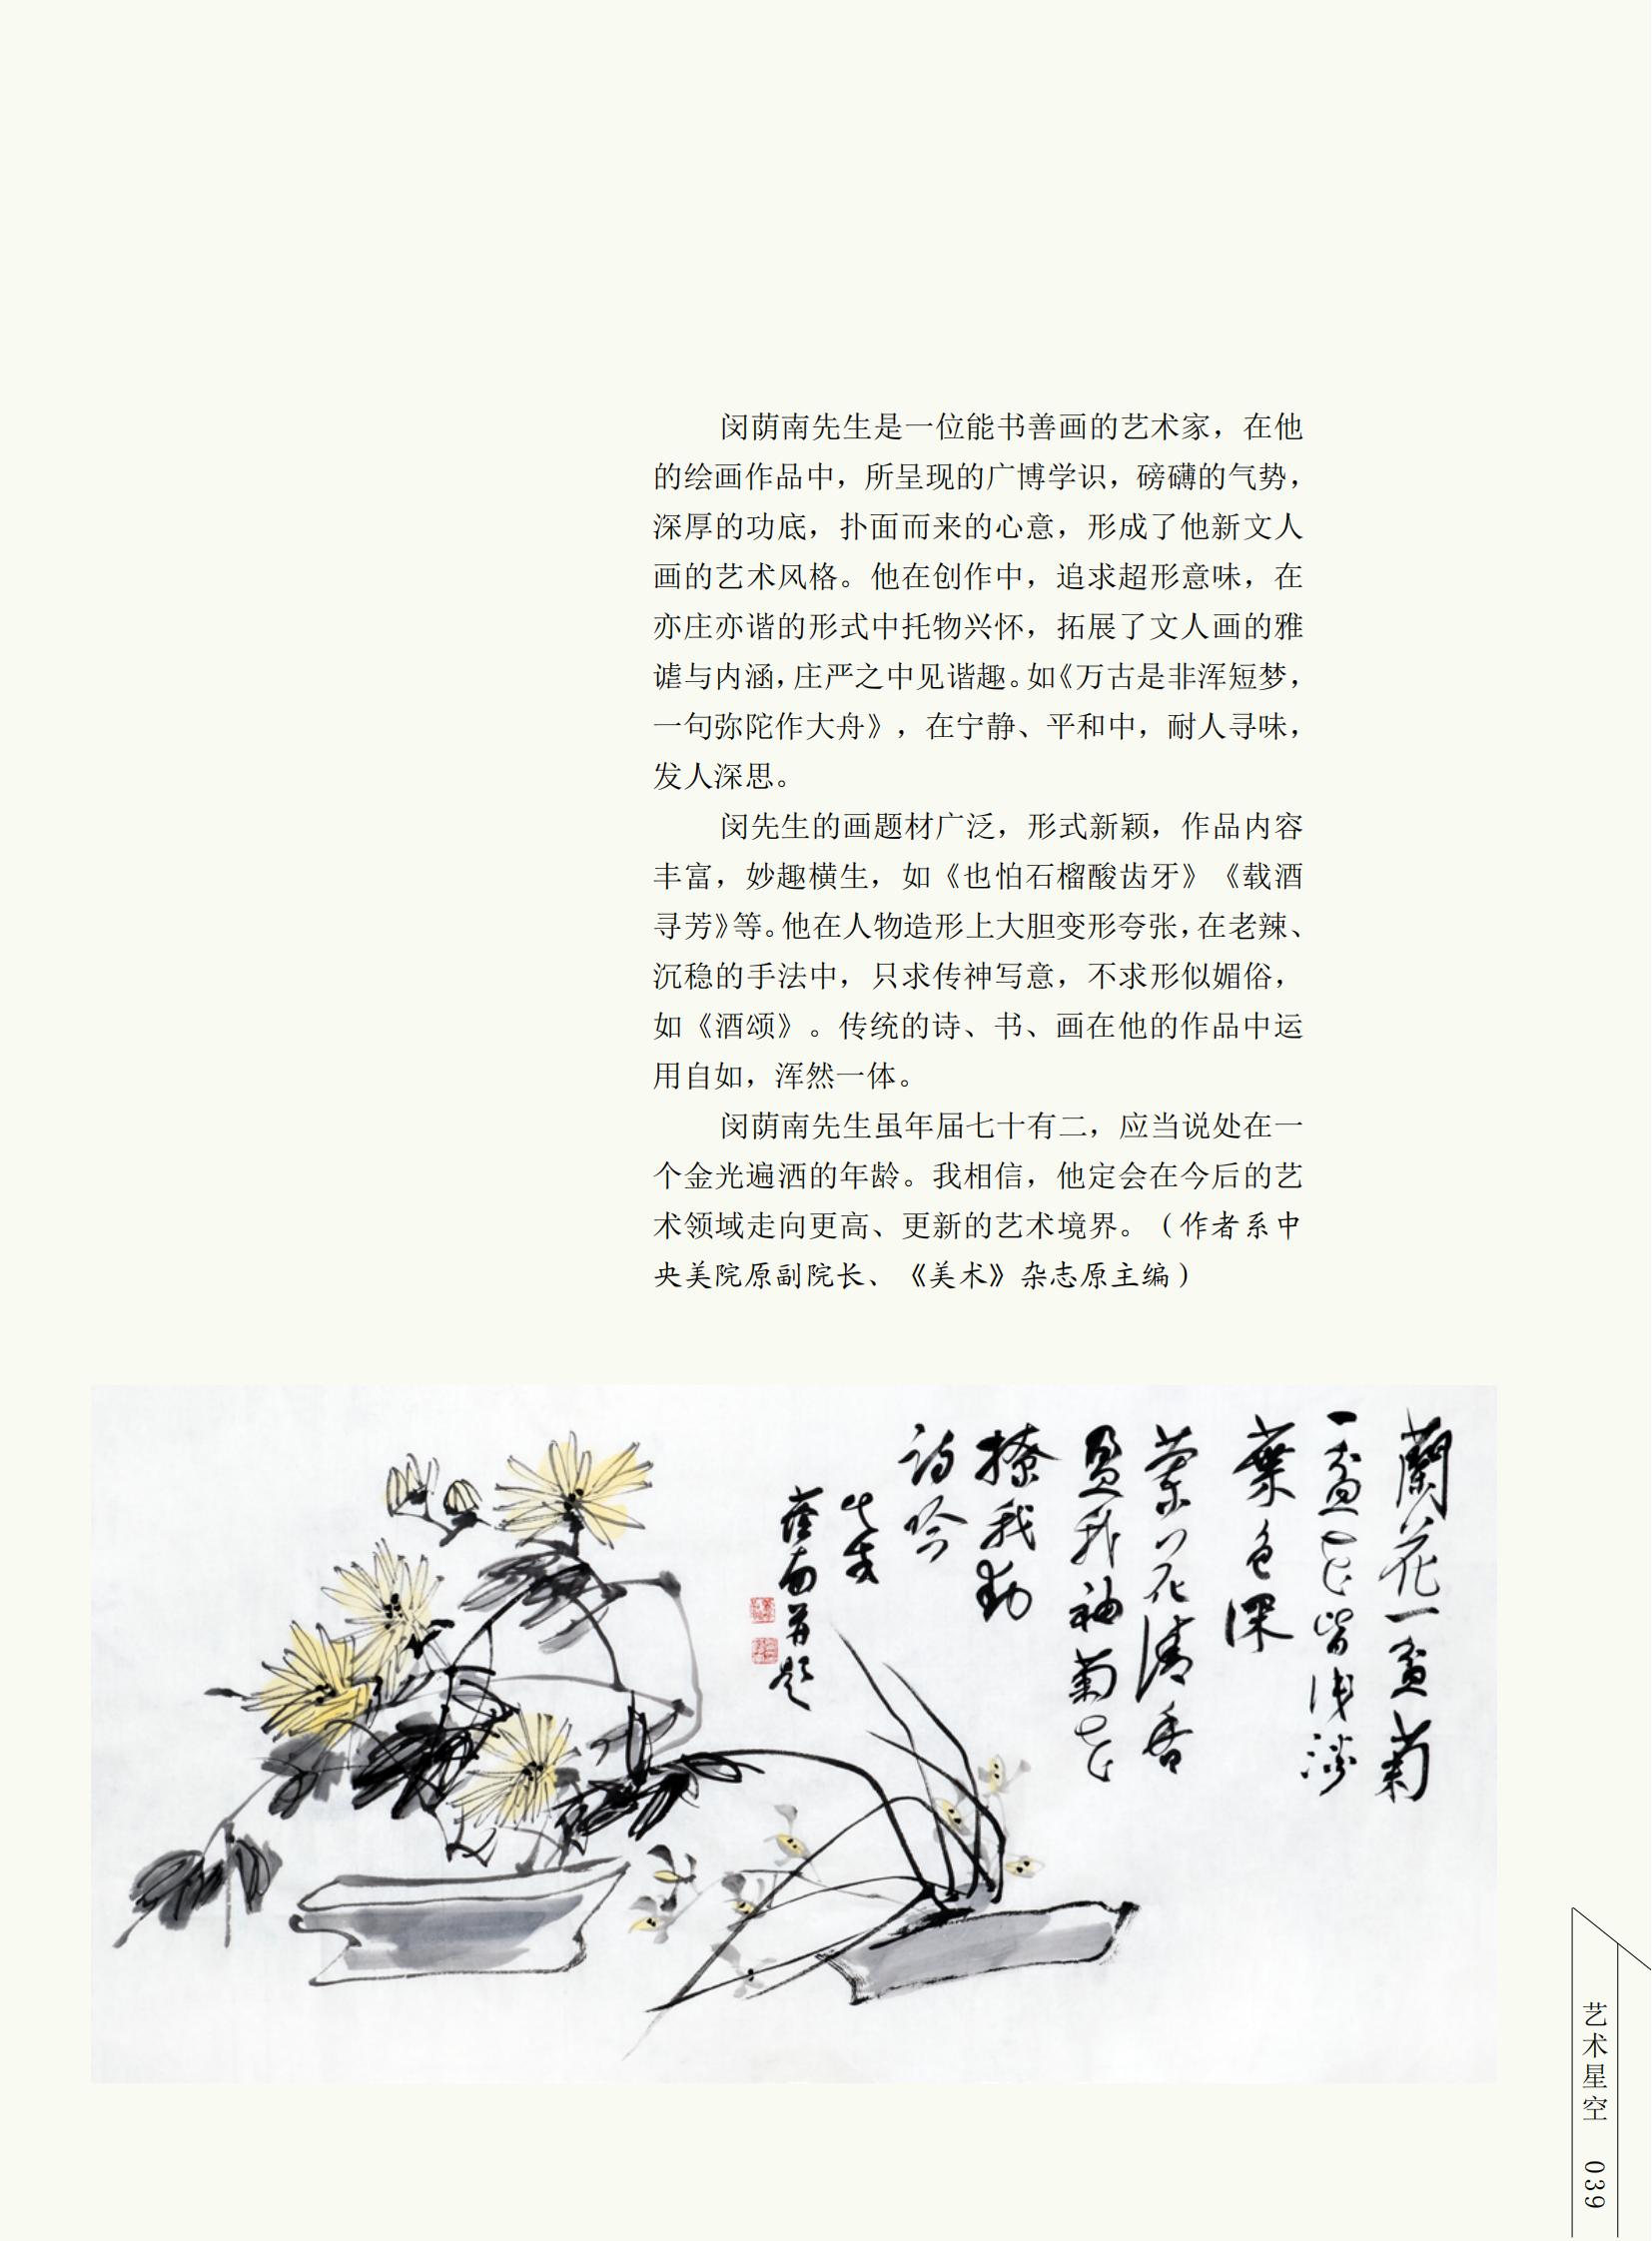 闵荫南先生是一位能书善画的艺术家，在他
的绘画作品中，所呈现的广博学识，磅礴的气势，
深厚的功底，扑面而来的心意，形成了他新文人
画的艺术风格。他在创作中，追求超形意味，在
亦庄亦谐的形式中托物兴怀，拓展了文人画的雅
谑与内涵，庄严之中见谐趣。如《万古是非浑短梦，
一句弥陀作大舟》，在宁静、平和中，耐人寻味，
发人深思。
闵先生的画题材广泛，形式新颖，作品内容
丰富，妙趣横生，如《也怕石榴酸齿牙》《载酒
寻芳》等。他在人物造形上大胆变形夸张，在老辣、
沉稳的手法中，只求传神写意，不求形似媚俗，
如《酒颂》。传统的诗、书、画在他的作品中运
用自如，浑然一体。
闵荫南先生虽年届七十有二，应当说处在一
个金光遍洒的年龄。我相信，他定会在今后的艺
术领域走向更高、更新的艺术境界。（作者系中
央美院原副院长、《美术》杂志原主编）
蘭花一盆菊
一盆花皆浅淡
葉色深
蘭花清香
盈我袖菊花
撩我動
詩吟
蔭南并题
艺术星空 039